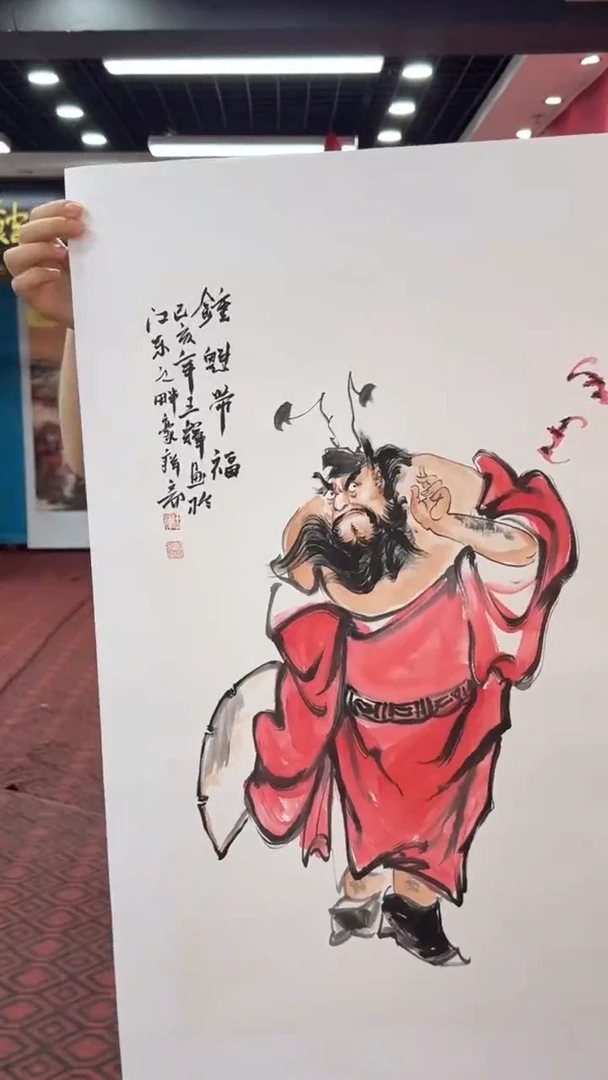 鍾魁带福
己亥年王輝画於
江东之畔豪辉斋